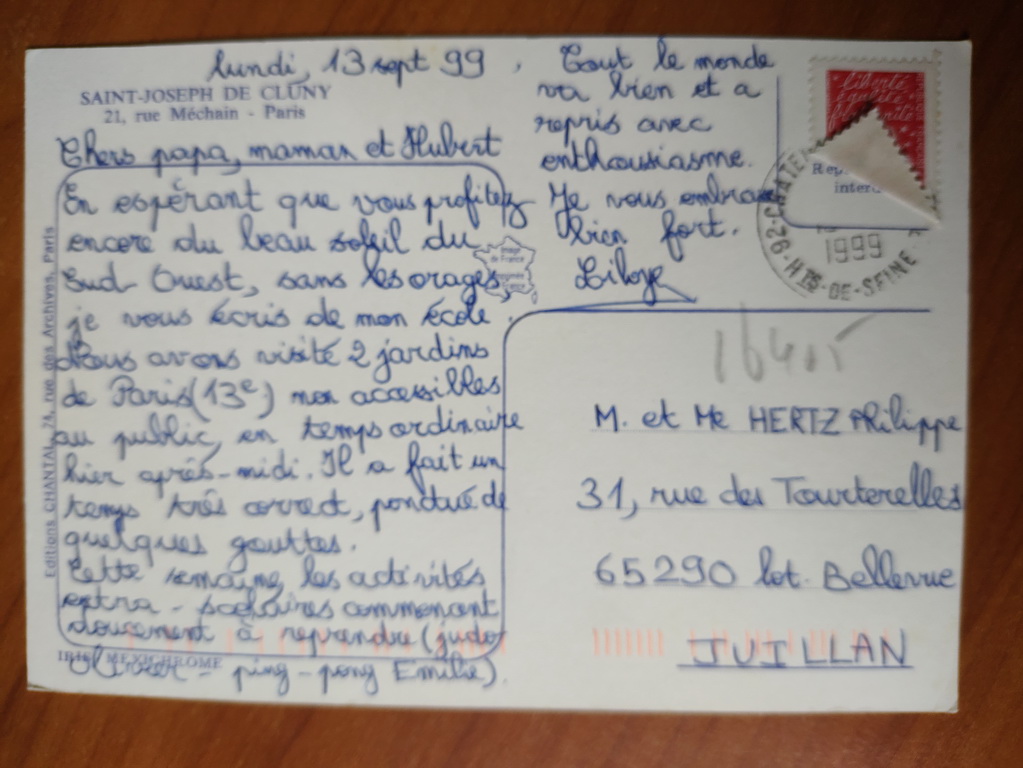 lundi, 13 sept 99
SAINT-JOSEPH DE CLUNY
21, rue Méchain - Paris
Chers papa, maman et Hubert
En espérant que vous profitez
encore du beau soleil du
Sud-Ouest, sans les orages,
je vous écris de mon école.
Nous avons visité 2 jardins
de Paris (13e) non accessibles
au public, en temps ordinaire
hier après-midi. Il a fait un
temps très correct, ponctué de
quelques gouttes.
Cette semaine, les activités
extra-scolaires commencent
doucement à reprendre (judo
- ping-pong Emilie).
Tout le monde
va bien et a
repris avec
enthousiasme.
Je vous embrasse
bien fort.
Editions CHANTAL, 74, rue des Archives, Paris
IRIS MEXICHROME
Image
de France
liberté
1999
92-CHATE
HTS-DE-SEINE
16405
M. et Me HERTZ Philippe
31, rue des Tourterelles
65290 lot. Bellevue
JUILLAN